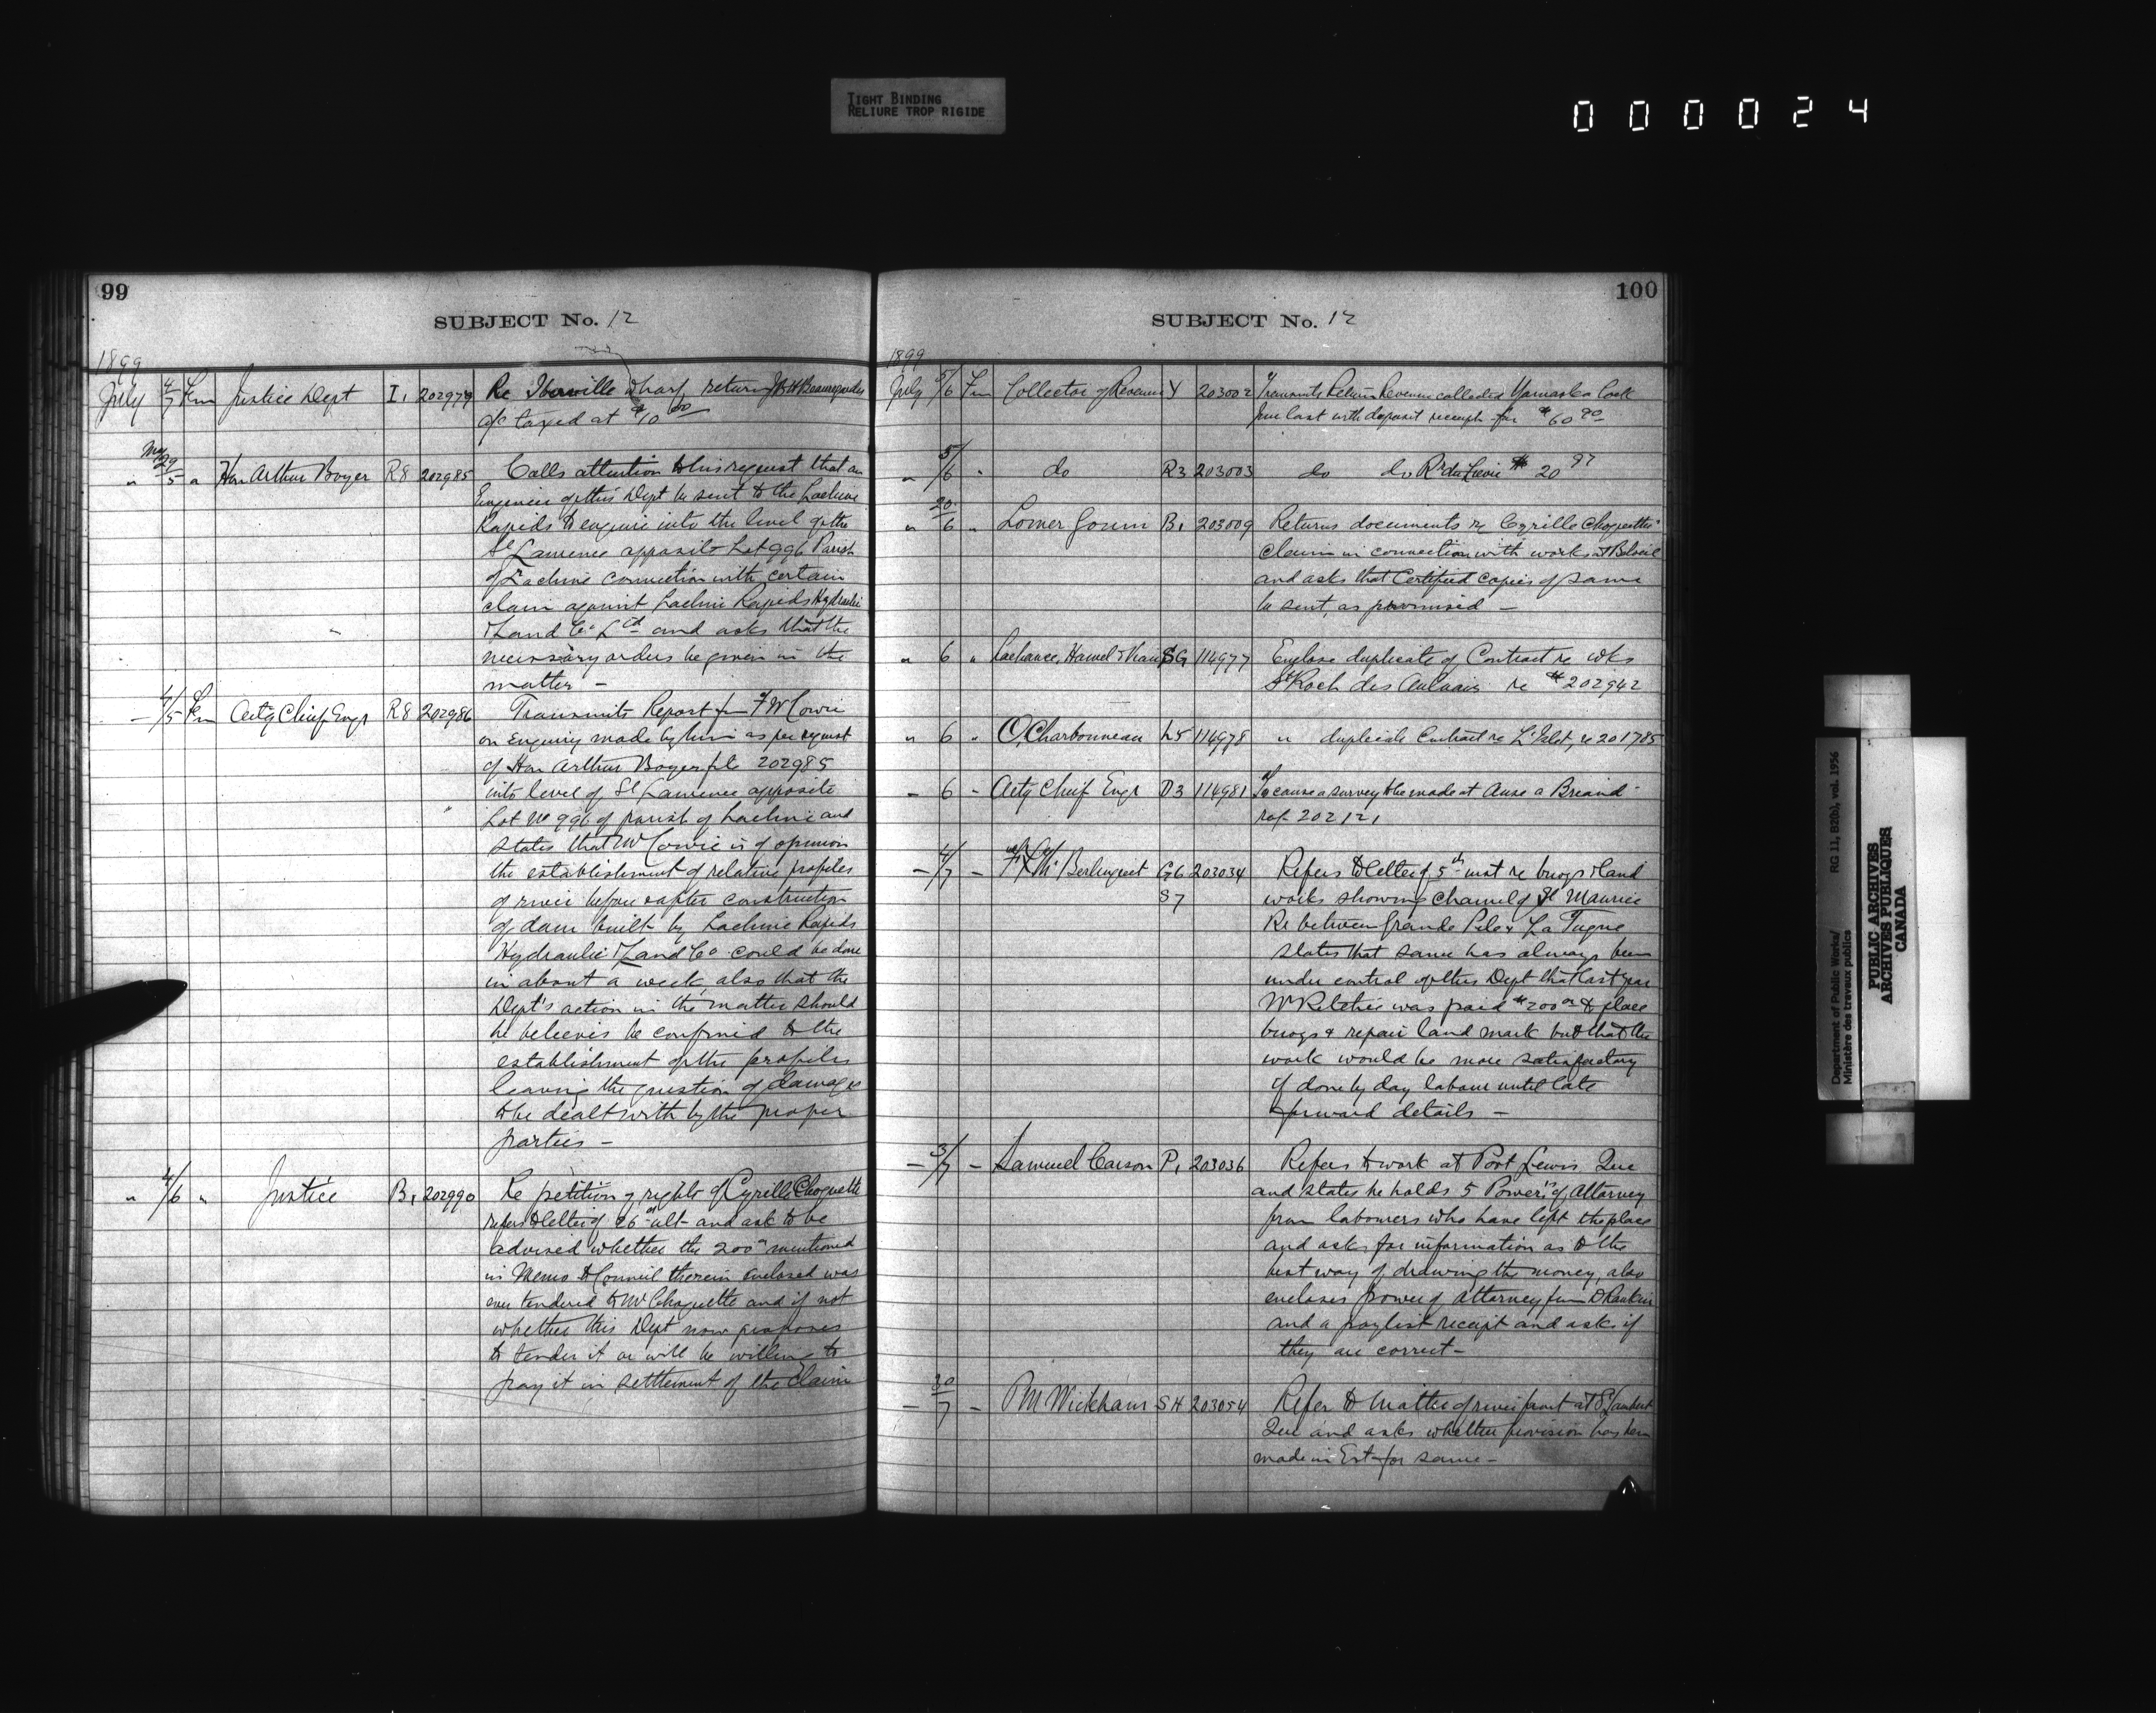 TIGHT BINDING
RELIURE TROP RIGIDE
000024
99
SUBJECT No. 12
1899
July 4/7 Fm Justice Dept I1 202979 Re Iberville wharf returns J B H Beauregard's
a/c taxed at $10.00
" May 29/5 " Hon Arthur Boyer R8 202985 Calls attention to his request that an
Engineer of this Dept be sent to the Lachine
Rapids to enquire into the level of the
St Lawrence opposite Lot 996 Parish
of Lachine connection with certain
claim against Lachine Rapids Hydraulic
& Land Co Ltd and asks that the
necessary orders be given in the
matter —
— 4/5 Fm Actg Chief Engr R8 202986 Transmits Report fm F W Cowie
on Enquiry made by him as per request
of Hon Arthur Boyer file 202985
into level of St Lawrence opposite
Lot No 996 of parish of Lachine and
states that Mr Cowie is of opinion
the establishment of relative profiles
of river before & after construction
of dam built by Lachine Rapids
Hydraulic & Land Co could be done
in about a week, also that the
Dept's action in the matter should
he believes be confined to the
establishment of the profiles
leaving the question of damages
to be dealt with by the proper
parties —
" 4/6 " Justice B1 202990 Re petition of rights of Cyrille Choquette
refers to letter of 26th ult and ask to be
advised whether the 200 00 mentioned
in Memo to Council therein enclosed was
ever tendered to Mr Choquette and if not
whether this Dept now proposes
to tender it or will be willing to
pay it in settlement of the claim
100
SUBJECT No. 12
1899
July 5/6 Fm Collector of Revenue Y 203002 Transmits Return Revenue collected Yamaska Lock
June last with deposit receipt for $60 90
" 5/6 " do R3 203003 do do R. du Lievre $20 97
" 20/6 " Lomer Gouin B1 203009 Returns documents re Cyrille Choquette's
claim in connection with works at Beloeil
and asks that Certified copies of same
be sent, as promised —
" 6 " Lachance, Hamel & SG 114977 Enclose duplicate of Contract re wks
St Roch des Aulnais re #202942
" 6 " O. Charbonneau L5 114978 " duplicate Contract re L'Islet, re 201785
— 6 — Actg Chief Engr D3 114981 To cause a survey to be made at Anse a Briand
ref 202121
— 4/7 — F X Berlinguet G6 203034 Refers to letter of 5th inst re buoys & land
S7 works showing channel of St Maurice
Re between Grande Piles & La Tuque
states that same has always been
under control of this Dept that last year
Mr Ritchie was paid $200 00 to place
buoys & repair land mark but that the
work would be more satisfactory
if done by day labour until late
forward details —
— 3/7 — Samuel Carson P1 203036 Refers to work at Port Lewis Que
and states he holds 5 Power's of Attorney
from labourers who have left the place
and asks for information as to the
best way of drawing the money, also
encloses power of attorney from D Rankin
and a paylist receipt and asks if
they are correct —
— 30/7 — P M Wickham SH 203054 Refer to matter of river front at St Lambert
Que and asks whether provision has been
made in Est for same —
Department of Public Works/ RG 11, B2(b), vol. 1956
Ministère des travaux publics
PUBLIC ARCHIVES
ARCHIVES PUBLIQUES
CANADA